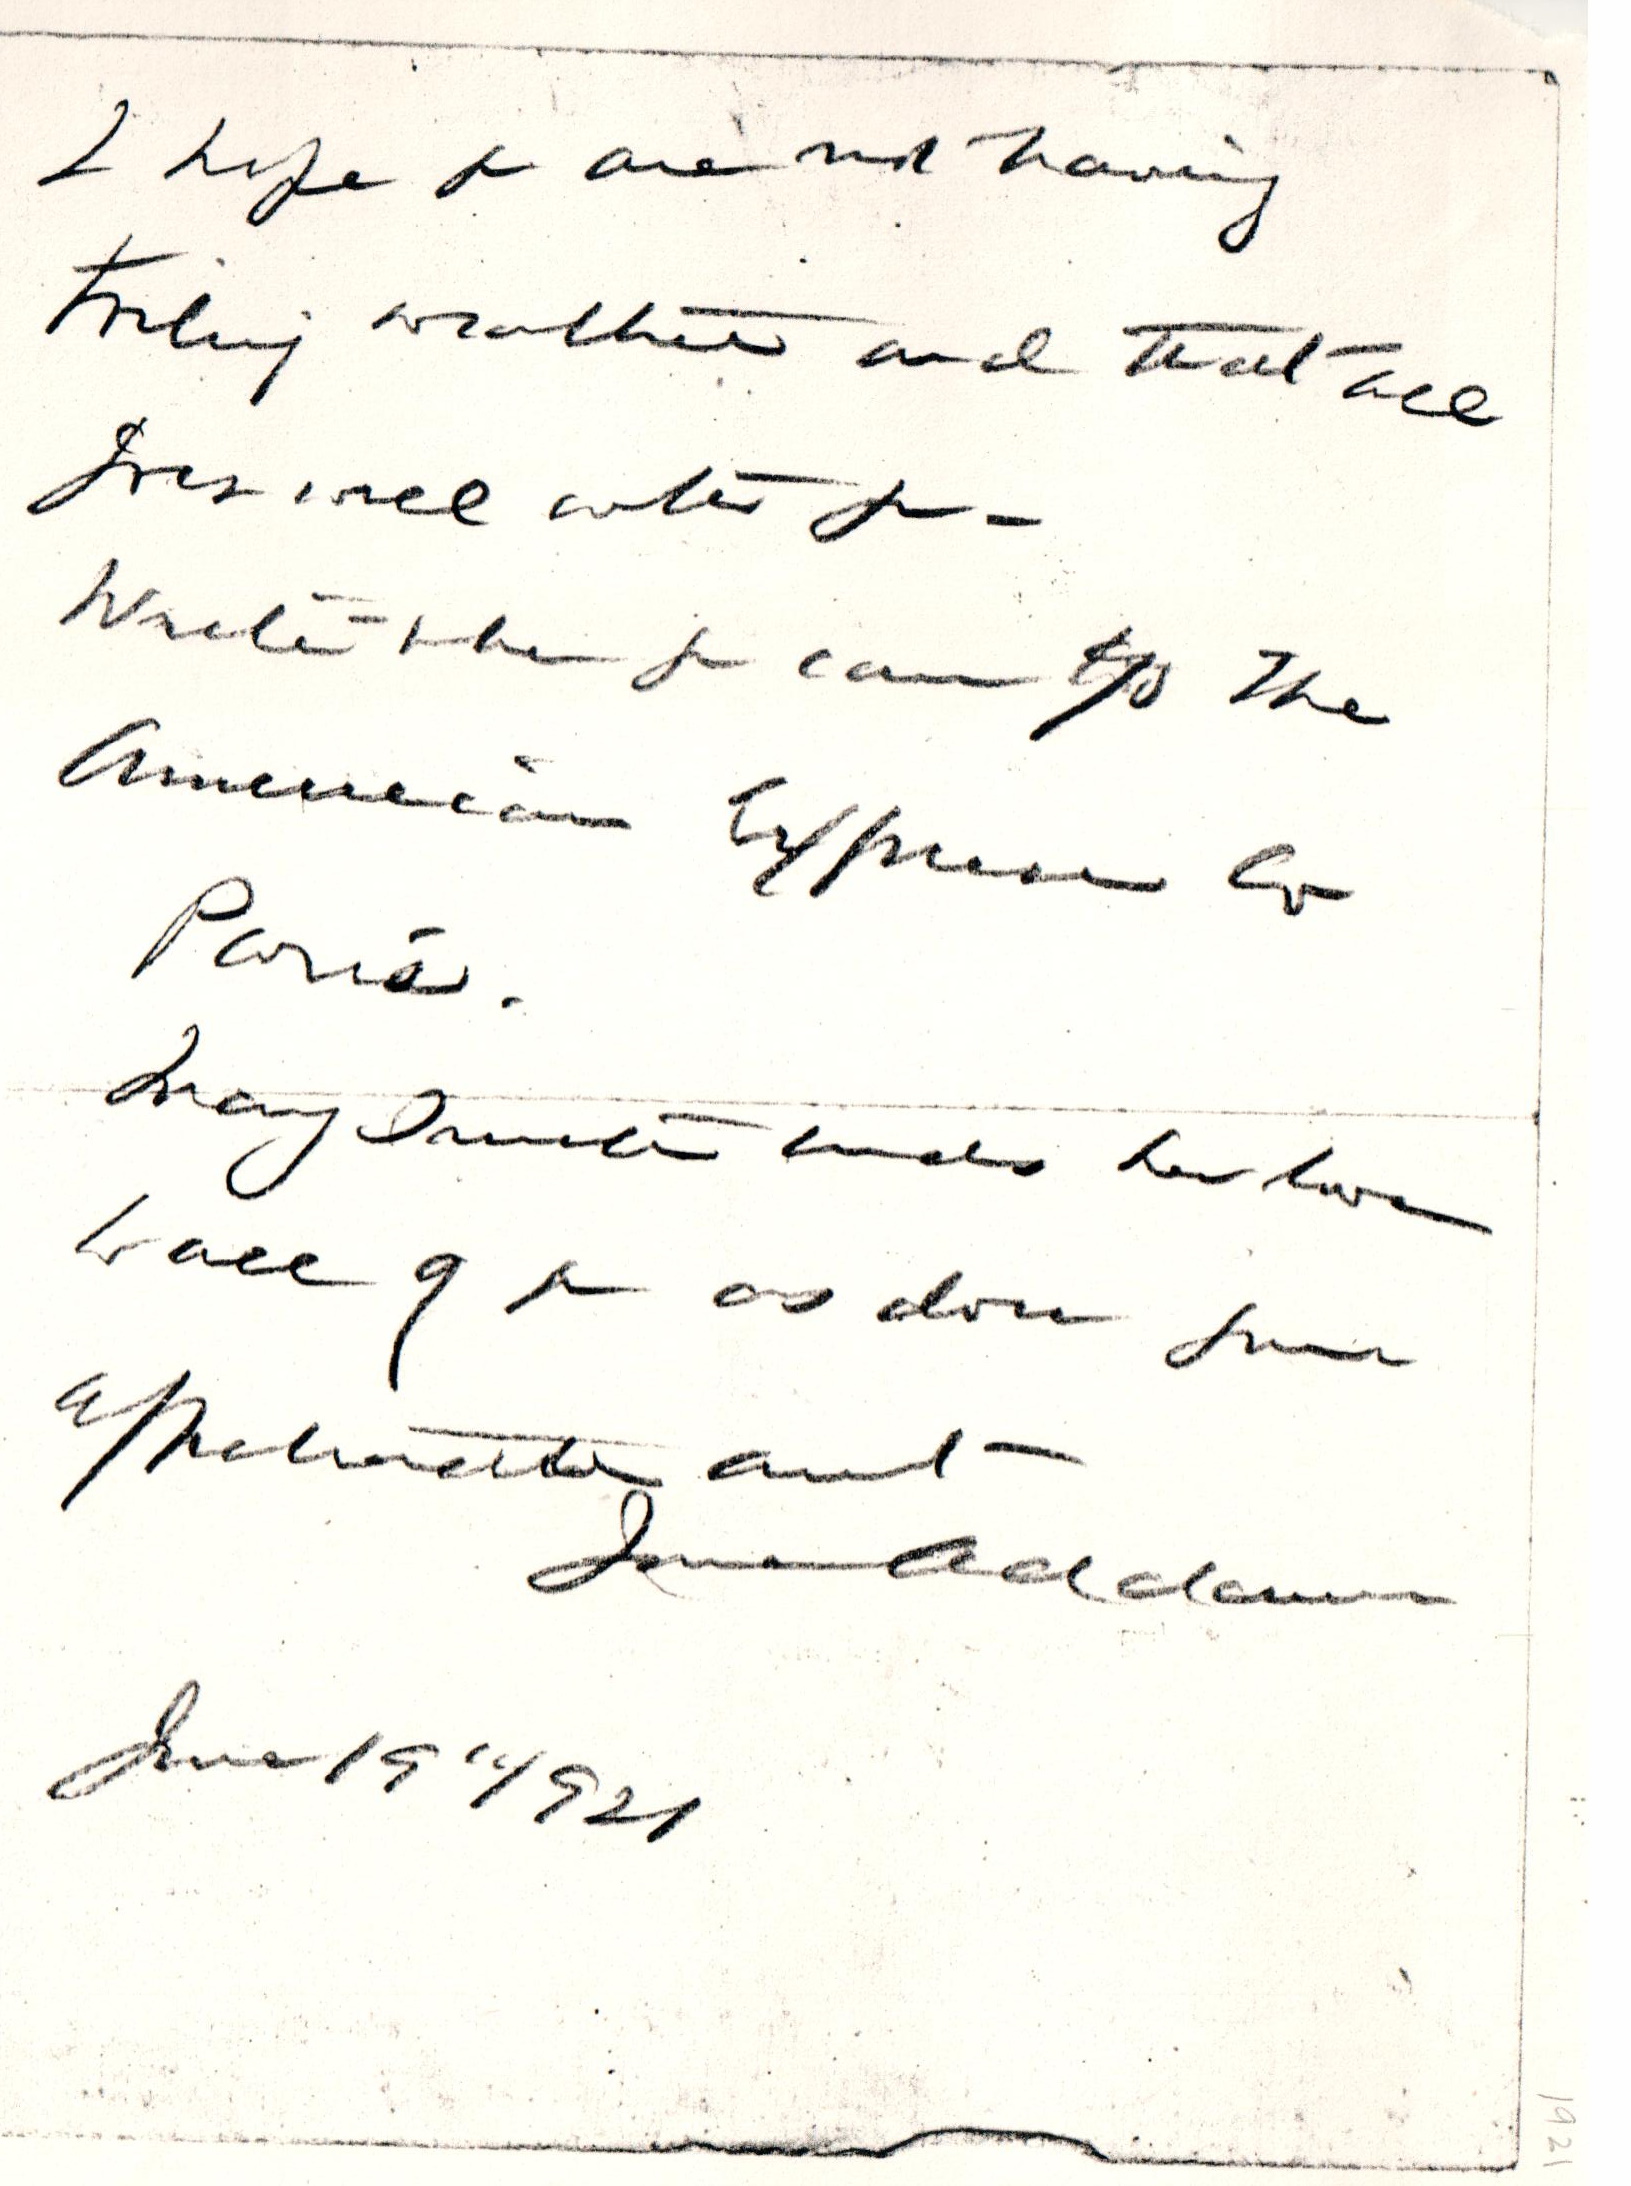 I hope yr are not having
broiling weather and that all
goes well with yr –
Write when yr can c/o the
American Express Co
Paris.
Mary Smith sends her love
to all of yr as does your
affectionate aunt
Jane Addams
June 19" 1921
1921